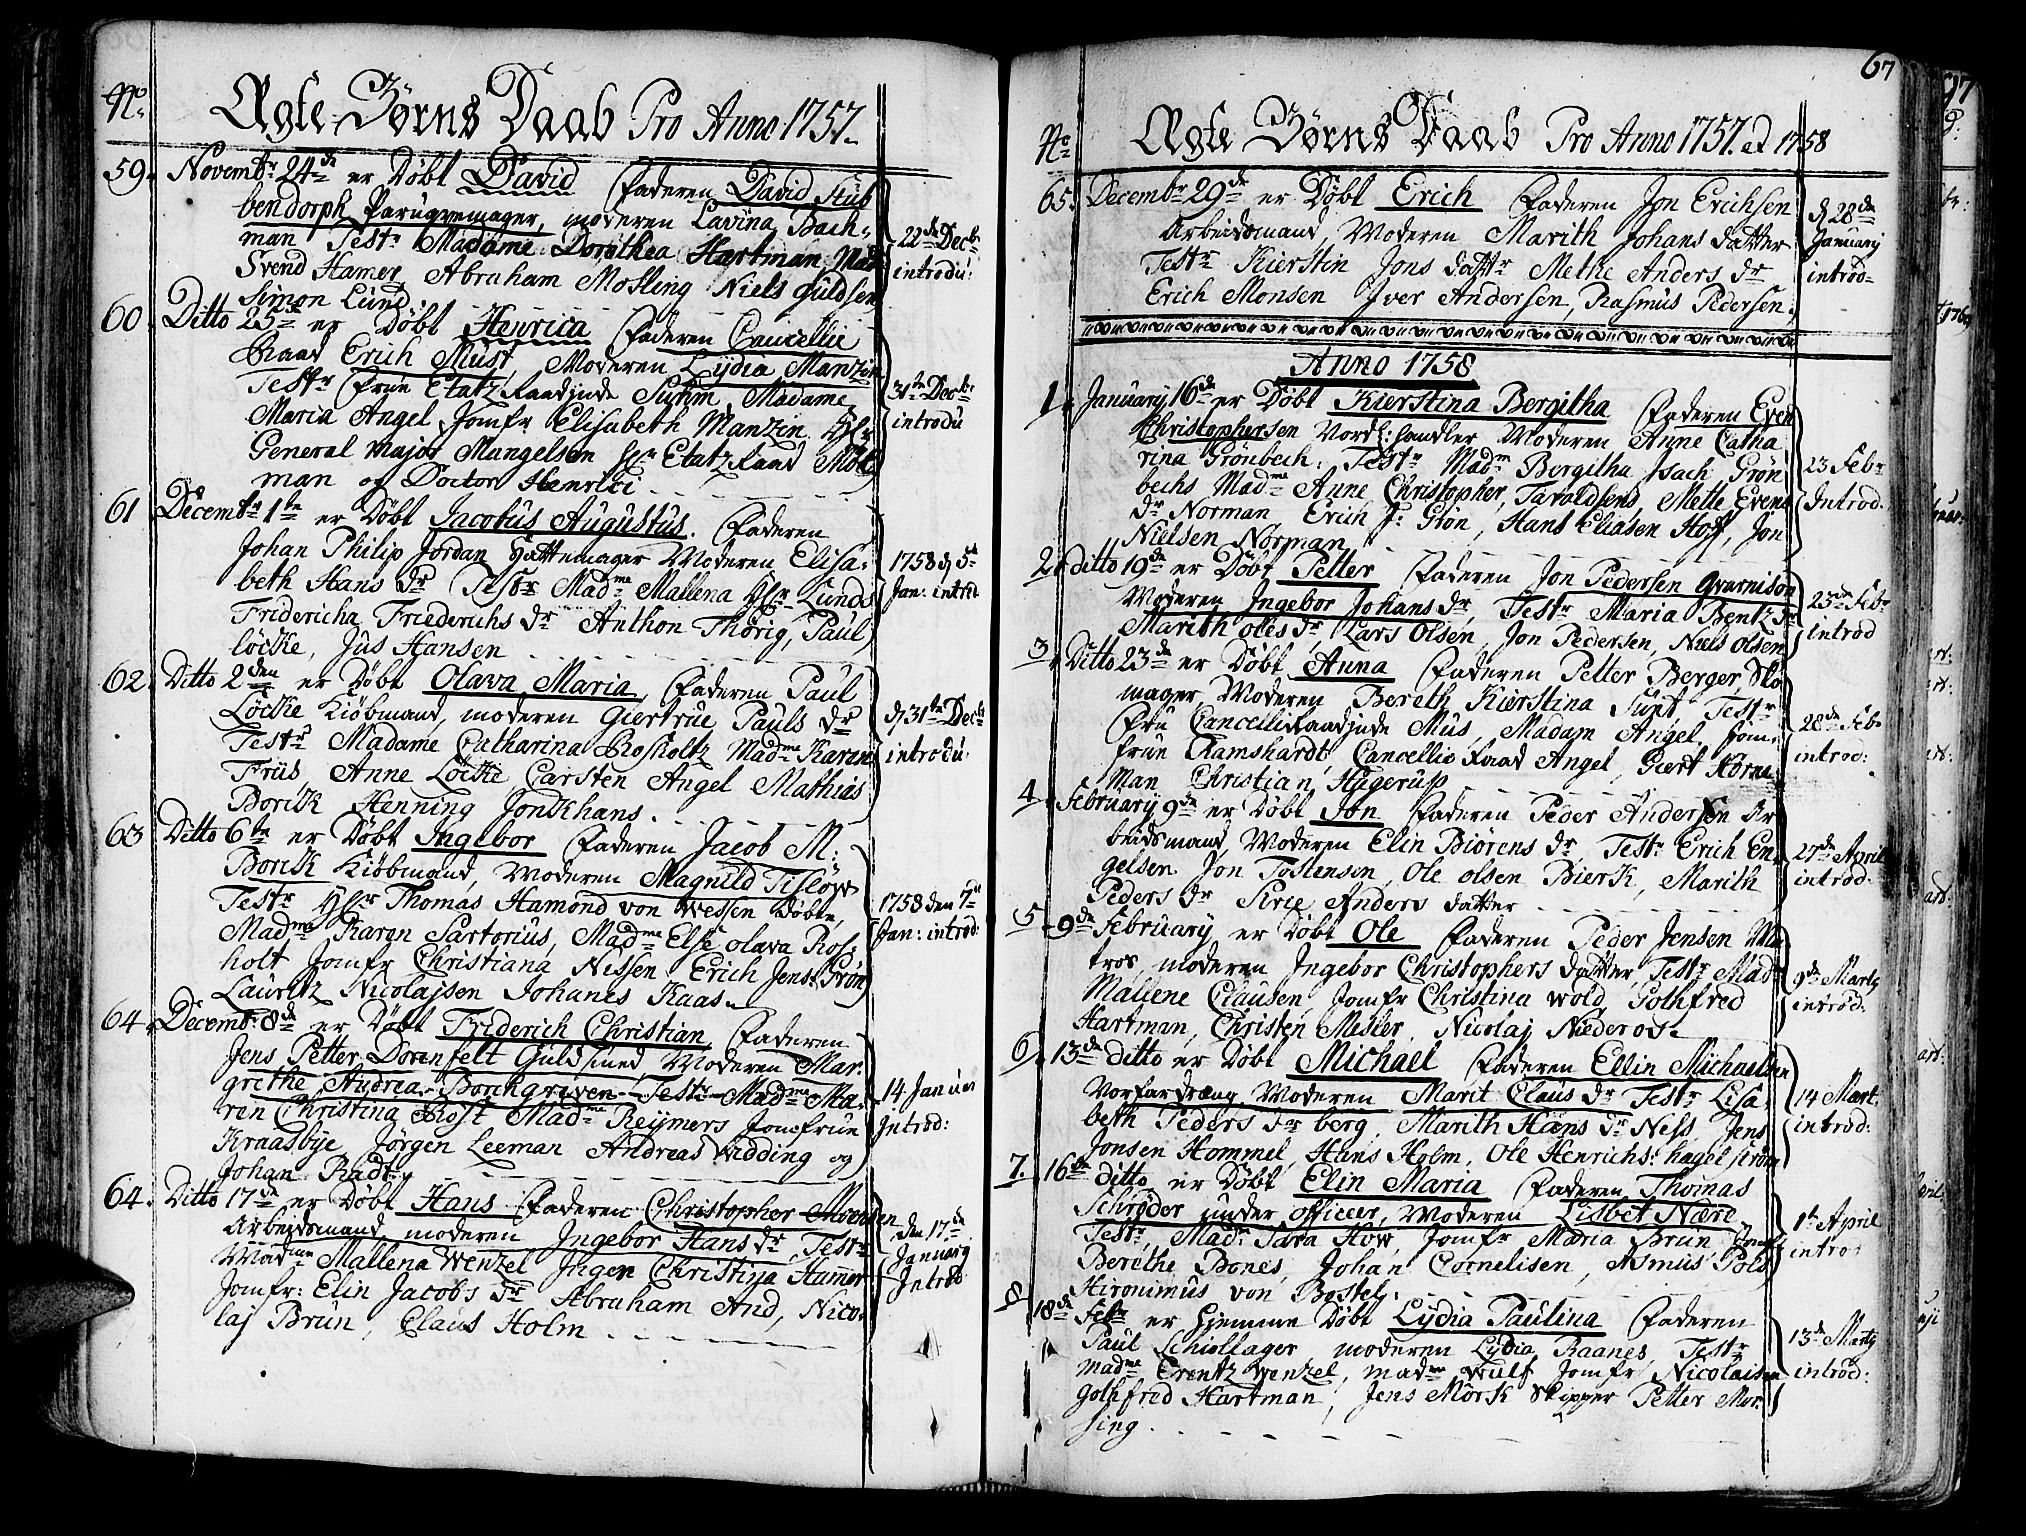 No. Ægte Børns Daab Pro Anno 1757.
59. Novembr. 24de er Døbt David Faderen David Stub
bendorph Parugvemager, moderen Lavina Bach-
man Testr Madame Dorothea Hartman, Mad
Svend Hamer, Abraham Mosling Niels Guldsen,
Simon Lund.
22de Decbr.
introdu:
60. Ditto 25de er Døbt Henrica Faderen Cancellie
Raad Erich Must, Moderen Lydia Mantzin
Testr Frue Etatz Raadinde Suhm Madame
Maria Angel, Jomfr Elisabeth Mantzin Hr
General Major Mangelsen Hr Etatz Raad Möll
man og Doctor Henrici
31te Decbr.
introdu
61 Decembr 1te er Døbt Jacobus Augustus. Faderen
Johan Philip Jordan Hattemager Moderen Elisa-
beth Hans dr Testr Madme Mallena Hr Lunds
Fridericha Friederichs dr Anthon Thörig, Paul
löcke, Jus Hansen
1758 d 5te
Jan: introd.
62. Ditto 2den er Døbt Olava Maria, Faderen Paul
Löcke Kiöbmand, moderen Giertrue Pauls dr
Testr Madame Catharina Rosholtz Madme Karen
Friis, Anne Löcke Carsten Angel Mathias
Borik Henning Jonkhans.
d 31te Decbr
introdu:
63 Ditto 6te er Døbt Ingebor Faderen Jacob M:
Borik Kiöbmand, Moderen Magnild Tisløv
Testr Hr Thomas Hamond von Wessen Døbte,
Madme Karen Sartorius, Madme Else olava Ros-
holt Jomfr Christiana Nissen Erich Jens: Grön
Lauritz Nicolajsen Johanes Kaas.
1758 den 7de
Jan: introd:
64. Decemb: 8de er Døbt Friderich Christian Faderen
Jens Petter Dorenfelt Guldsmed Moderen Mar-
grethe Andrea Borchgreven Testr Madme Ma-
ren Christina Rost Madme Reymers Jomfrue
Kraasbye Jörgen Leeman Andreas Widding og
Johan Radt
14 Januar
Introd:
64. Ditto 17de er Døbt Hans Faderen Christopher Monsen
Arbeidsmand, moderen Ingebor Hans dr, Testr
Madme Mallena Wenzel Ingen Christina Hamer
Jomfr: Elin Jacobs dr Abraham And, Nico-
laj Brun, Claus Holm
den 17de
January
Introd
67
No. Ægte Børns Daab Pro Anno 1757. et 1758
65. Decembr 29de er Døbt Erich Faderen Jon Erichsen
Arbeidsmand, Moderen Marith Johans datter
Testr Kierstin Jons dattr Methe Anders dr
Erich Monsen Iver Andersen, Rasmus Pedersen.
d 28de
January
introd=
Anno 1758
1. January 16de er Døbt Kierstina Bergitha Faderen Even
Christophersen Vordl: handler Moderen Anne Catha
rina Grönbech. Testr Madm Bergitha Isach Grön
bechs Madme Anne Christopher, Taraldsens, Mette Evens
dr Norman Erich J: Grön, Hans Eliasen Hoff, Jon
Nielsen Norman
23 Febr
Introd.
2. ditto 19de er Døbt Petter Faderen Jon Pedersen Gvarnison
Moderen Ingebor Johans dr, Testr Maria Bentz dr
Marith oles dr, Lars Olsen, Jon Pedersen, Niels olsen
23de Febr
introd
3. Ditto 23de er Døbt Anna Faderen Petter Berger, Sko
mager Moderen Bereth Kierstina Supt, Testr
Fru Cancelliraadinde Mus, Madam Angel, Jom-
frue Ramshardt, Cancellie Raad Angel, Giert Horne-
man Christian Hagerup
28de Feb
introd:
4. February 9de er Døbt Jon Faderen Peder Andersen Ar
beidsmand, Moderen Elin Biörens dr, Testr Erich En-
gelsen Jon Tostensen, Ole olsen Bierk, Marith
Peders dr Sirie Anders datter
27de April
introd:
5 9de February er Døbt Ole Faderen Peder Jensen Ma
tros, moderen Ingebor Christophers datter, Testr Mad
Mallene Clausen, Jomfr Christina Wold, Gothfred
Hartman, Christen Mesler, Nicolaj Niederos.
9de Marty
introd:
6. 13de ditto er Døbt Michael Faderen Ellin Michaelsen
Vorfardræng, Moderen Marit Claus dr Testr Lisa-
beth Peders dr berg, Marith Hans dr Ness, Jens
Jonsen Hommel, Hans Holm, Ole Henrichs: hagelström
14 Mart.
introd:
7. 16de ditto, er Døbt Elin Maria Faderen Thomas
Schrøder under officeer, Moderen Lisbet Nære
Testr, Madr Sara How, Jomfr Maria Brun Jomf
Berethe Bones, Johan Cornelisen, Asmus Pols
Hironimus von Bostel,
1te April
introd
8 18de Febr er Hjemme Døbt Lydia Paulina Faderen
Paul Schiellager, moderen Lydia Raanes, Testr
Madme Erentz Wenzel, madme Wulf Jomfr Nicolaisen
Gothfred Hartman, Jens Mörk Skipper Petter Mor-
sing.
13de Marty
introd: